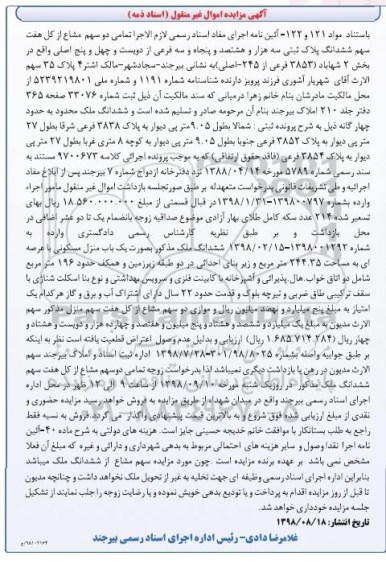 آگهی مزایده اموال غیر منقول (اسناد ذمه)
باستناد مواد ۱۲۱ و ۱۲۲- آئین نامه اجرای مفاد اسناد رسمی لازم الاجرا تمامی دو سهم مشاع از کل هفت
سهم ششدانگ پلاک ثبتی سه هزار و هشتصد و پنجاه و سه فرعی از دویست و چهل و پنج اصلی واقع در
بخش ۲ شهاباد (۳۸۵۳ فرعی از ۲۴۵-اصلی)به نشانی بیرجند-سجادشهر-مالک اشتر۴ پلاک ۳۵ سهم
الارث آقای شهریار آشوری فرزند پرویز دارنده شناسنامه شماره ۱۱۹۱ و شماره ملی ۵۲۳۹۲۱۹۸۰۱ از
محل مالکیت مادرشان بنام خانم زهرا درمیانی که سند مالکیت آن ذیل ثبت شماره ۳۳۰۷۶ صفحه ۳۶۵
دفتر جلد ۲۱۰ املاک بیرجند بنام آن مرحومه صادر و تسلیم شده است و ششدانگ ملک محدود به حدود
چهار گانه ذیل به شرح پرونده ثبتی : شمالا بطول ۹.۰۵متر پی دیوار به پلاک ۳۸۳۸ فرعی شرقا بطول ۲۷
متر پی دیوار به پلاک ۳۸۵۲ فرعی جنوبا بطول ۹.۰۵ متر پی دیوار به کوچه ۸ متری غربا بطول ۲۷ متر پی
دیوار به پلاک ۳۸۵۴ فرعی (فاقد حقوق ارتفاقی) که به موجب پرونده اجرائی کلاسه ۹۷۰۰۶۷۳ مستند به
سند رسمی شماره ۵۷۸۹ مورخه ۱۳۸۸/۰۴/۱۴ نزد دفترخانه ازدواج شماره ۷ بیرجند پس از ابلاغ مفاد
اجرائیه و طی تشریفات قانونی بدرخواست متعهدله بر طبق صورتجلسه بازداشت اموال غیر منقول مامور اجراء
وارده بشماره ۱۳۹۸۰۰۷۹۷-۱۳۹۸/۱/۳۱در قبال قسمتی از مبلغ ۱۸.۵۶۰.۰۰۰.۰۰۰ ریال بهای
تسعیر شده ۲۱۴ عدد سکه کامل طلای بهار آزادی موضوع صداقیه زوجه بانضمام یک تا دو عشر اضافی در
محل بازداشت و بر طبق نظریه کارشناس رسمی دادگستری وارده به
شماره ۱۳۹۸۰۰۱۲۹۲-۱۳۹۸/۰۲/۱۵ ششدانگ ملک مذکور بصورت یک باب منزل مسکونی با عرصه
ای به مساحت ۲۴۴.۳۵ متر مربع و زیر بنای احداثی در دو طبقه زیرزمین و همکف حدود ۱۹۶ متر مربع
شامل دو اتاق خواب،هال،پذیرائی و آشپزخانه با کابینت فلزی و سرویس بهداشتی و نوع بنا اسکلت شناژی با
سقف ترکیبی طاق ضربی و تیرچه بلوک و قدمت حدود ۲۲ سال دارای اشتراک آب و برق و گاز هرکدام یک
امتیاز به مبلغ پنج میلیارد و نهصد میلیون ریال و موازی دو سهم مشاع از کل هفت سهم منزل مذکور سهم
الارث مدیون به مبلغ یک میلیارد و ششصد و هشتاد و پنج میلیون و هفتصد و چهارده هزار و دویست و هشتاد و
چهار ریال (۱.۶۸۵.۷۱۴.۲۸۴ ریال) ارزیابی و بدلیل عدم وصول اعتراض قطعیت یافته است نظر به اینکه
بر طبق جوابیه واصله بشماره ۳۰۱/۹۸/۸۰۲۵-۱۳۹۸/۷/۳۸ اداره ثبت اسناد و املاک بیرجند سهم
الارث مدیون در رهن یا بازداشت دیگری نمیباشد لذا بدرخواست زوجه تمامی دوسهم مشاع از کل هفت سهم
ششدانگ ملک مذکور در روزیک شنبه مورخه ۱۳۹۸/۰۹/۱۰ از ساعت ۹ الی ۱۲ ظهر در محل اداره
اجرای اسناد رسمی بیرجند واقع در میدان شهداء از طریق مزایده به فروش خواهد رسید مزایده حضوری و
نقدی از مبلغ ارزیابی شده فوق شروع و به بالاترین قیمت پیشنهادی واگذار می گردید.فروش به نسیه فقط
راجع به طلب بستانکار با موافقت خانم خدیجه حسینی جایز است. هزینه های دولتی به شرح ماده ۴۰-آئین
نامه اجرا نقدا وصول و سایر هزینه های احتمالی مربوط به بدهی شهرداری و دارائی و غیره که مبلغ آن فعلا
مشخص نمی باشد بر عهده برنده مزایده است .چون مورد مزایده سهم مشاع از ششدانگ ملک میباشد
بنابراین اداره اجرای اسناد رسمی وظیفه ای جهت تخلیه به غیر از تحویل ملک نخواهد داشت و چنانچه مدیون
تا قبل از روز مزایده اقدام به پرداخت و یا تودیع بدهی خویش نموده و یا رضایت زوجه را جلب نمایند از تشکیل
جلسه مزایده خودداری خواهد شد.
تاریخ انتشار: ۱۳۹۸/۰۸/۱۸
غلامرضا دادی- رئیس اداره اجرای اسناد رسمی بیرجند